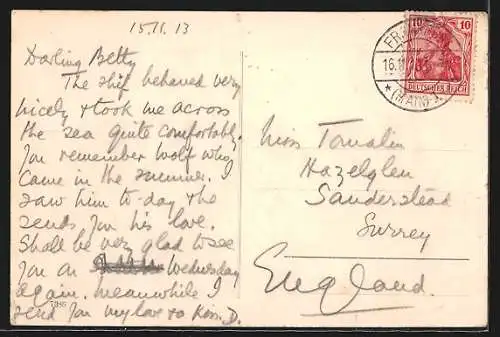 15.11.13
Darling Betty
The ship behaved very
nicely & took me across
the sea quite comfortably.
You remember Wolf who
came in the summer. I
saw him to-day & he
sends you his love.
Shall be very glad to see
you on Wednesday
again. Meanwhile I
send you my love & Kiss. D.
10 10
DEUTSCHES REICH
16.11
(MAIN)
Miss Tomalin
Hazelglen
Sanderstead
Surrey
England.